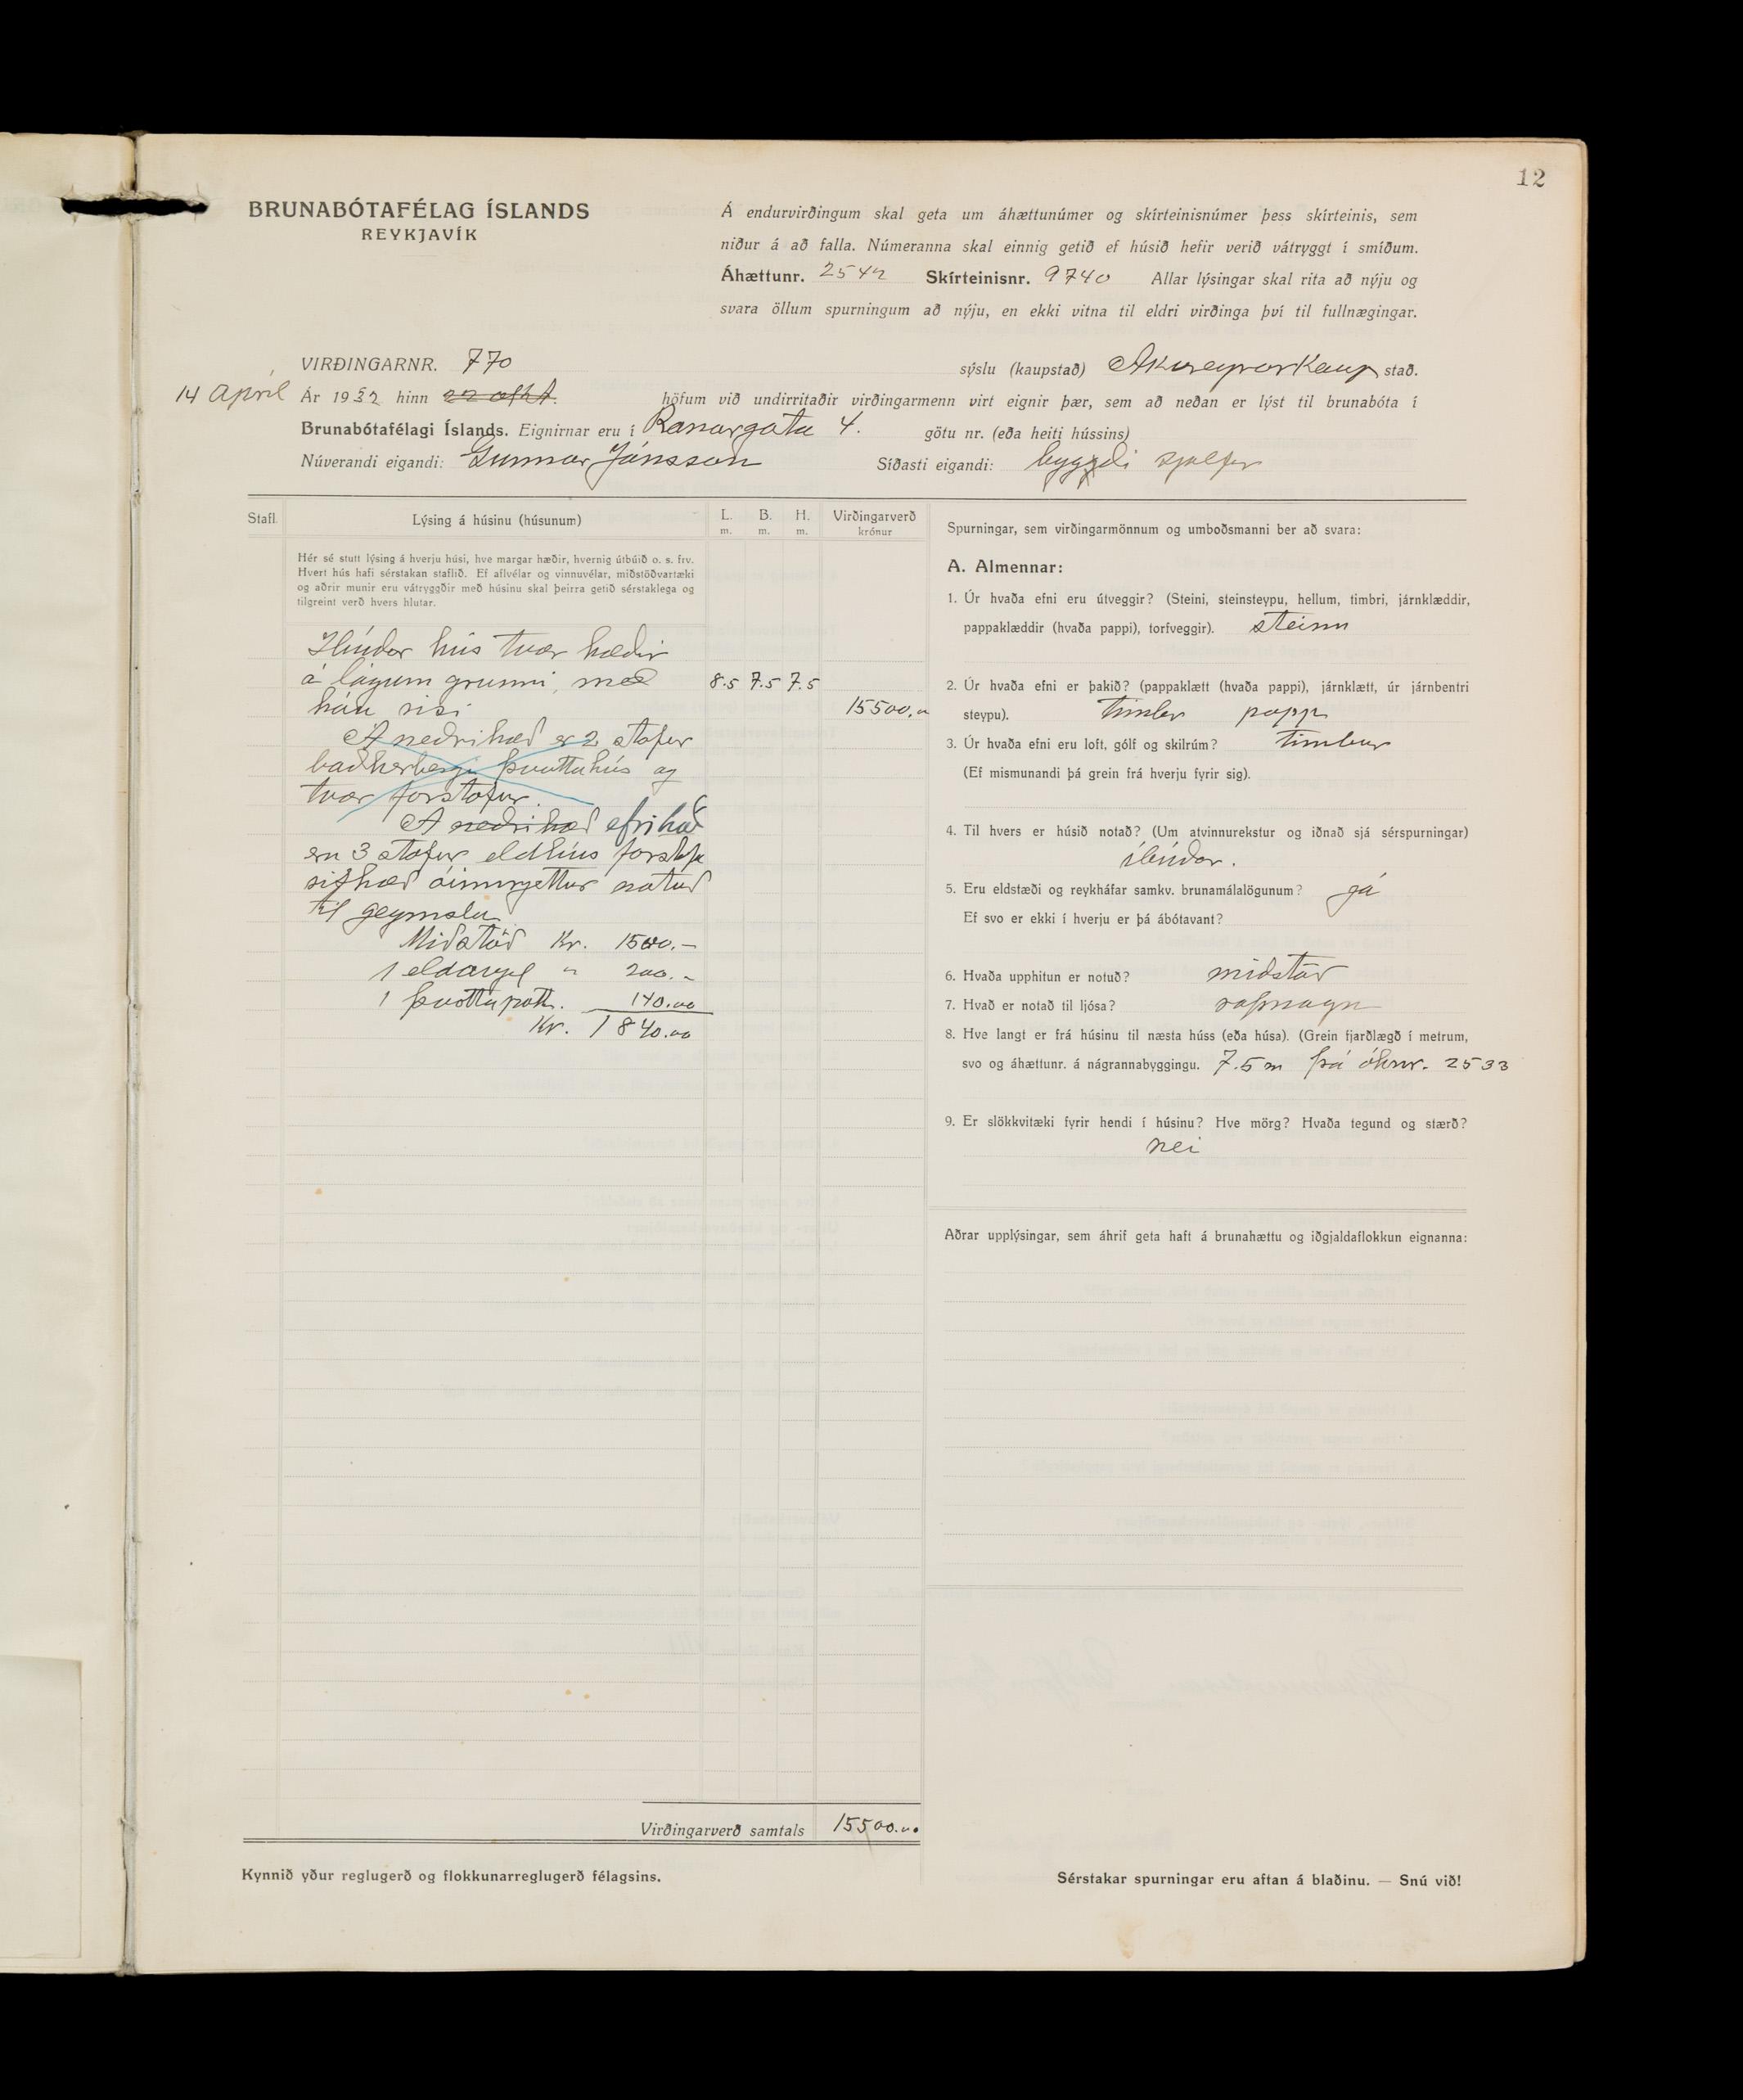 12
BRUNABÓTAFÉLAG ÍSLANDS
REYKJAVÍK
Á endurvirðingum skal geta um áhættunúmer og skírteinisnúmer þess skírteinis, sem
niður á að falla. Númeranna skal einnig getið ef húsið hefir verið vátryggt í smíðum.
Áhættunr. 2542 Skírteinisnr. 9740 Allar lýsingar skal rita að nýju og
svara öllum spurningum að nýju, en ekki vitna til eldri virðinga því til fullnægingar.
VIRÐINGARNR. 770 sýslu (kaupstað) Akureyrarkaupstað.
14 apríl Ár 1932 hinn 22 okt. höfum við undirritaðir virðingarmenn virt eignir þær, sem að neðan er lýst til brunabóta í
Brunabótafélagi Íslands. Eignirnar eru í Ranargata 4. götu nr. (eða heiti hússins)
Núverandi eigandi: Gunnar Jónsson Síðasti eigandi: byggdi sjalfur
Stafl. Lýsing á húsinu (húsunum) L. m. B. m. H. m. Virðingarverð krónur
Hér sé stutt lýsing á hverju húsi, hve margar hæðir, hvernig útbúið o. s. frv.
Hvert hús hafi sérstakan staflið. Ef aflvélar og vinnuvélar, miðstöðvartæki
og aðrir munir eru vátryggðir með húsinu skal þeirra getið sérstaklega og
tilgreint verð hvers hlutar.
Ibúdar hús tvær hædir
á lágum grunni, með 8.5 7.5 7.5
háu risi 15500,"
A nedrihæd er 2 stofur
baðherbergi þvottuhús og
tvær forstofur.
A nedrihæd efrihæð
eru 3 stofur eldhús forstofa
rishæd óinnrjettud notud
til geymslu
Midstöð Kr. 1500.–
1 eldavjel " 200.–
1 þvottapott. 140.00
Kr. 1840.00
Virðingarverð samtals 15500.00
Kynnið yður reglugerð og flokkunarreglugerð félagsins.
Spurningar, sem virðingarmönnum og umboðsmanni ber að svara:
A. Almennar:
1. Úr hvaða efni eru útveggir? (Steini, steinsteypu, hellum, timbri, járnklæddir,
pappaklæddir (hvaða pappi), torfveggir). steinn
2. Úr hvaða efni er þakið? (pappaklætt (hvaða pappi), járnklætt, úr járnbentri
steypu). timbr papp
3. Úr hvaða efni eru loft, gólf og skilrúm? timbur
(Ef mismunandi þá grein frá hverju fyrir sig).
4. Til hvers er húsið notað? (Um atvinnurekstur og iðnað sjá sérspurningar)
íbúdar.
5. Eru eldstæði og reykháfar samkv. brunamálalögunum? já
Ef svo er ekki í hverju er þá ábótavant?
6. Hvaða upphitun er notuð? midstöð
7. Hvað er notað til ljósa? rafmagn
8. Hve langt er frá húsinu til næsta húss (eða húsa). (Grein fjarðlægð í metrum,
svo og áhættunr. á nágrannabyggingu. 7.5 m frá áhnr. 2533
9. Er slökkvitæki fyrir hendi í húsinu? Hve mörg? Hvaða tegund og stærð?
nei
Aðrar upplýsingar, sem áhrif geta haft á brunahættu og iðgjaldaflokkun eignanna:
Sérstakar spurningar eru aftan á blaðinu. — Snú við!